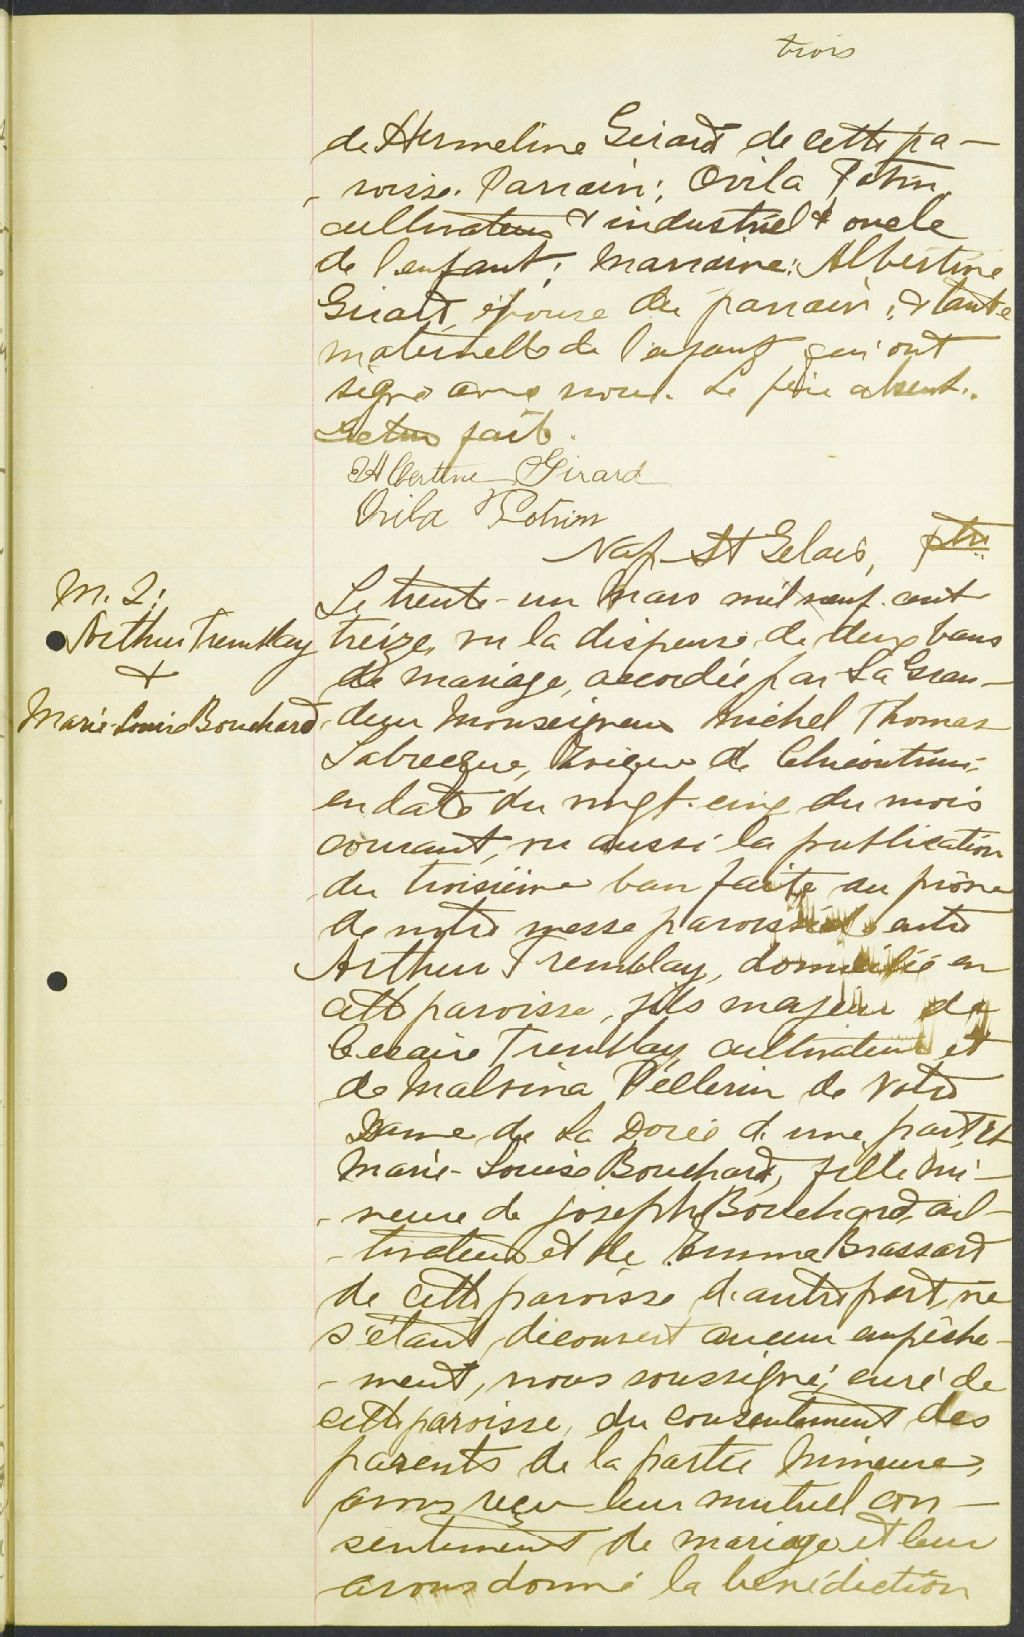 trois
de Hermeline Girard de cette pa-
-roisse. Parrain: Ovila Potvin,
cultivateur & industriel & oncle
de l'enfant; Marraine: Albertine
Girard, épouse du parrain, & tante
maternelle de l'enfant qui ont
signé avec nous. Le père absent.
Lecture faite.
Albertine Girard
Ovila Potvin
Nap. St Gelais, ptre
M. 2:
Arthur Tremblay
+
Marie-Louise Bouchard
Le trente-un Mars mil neuf cent
treize, vu la dispense de deux bans
de mariage, accordée par Sa Gran-
deur Monseigneur Michel Thomas
Labrecque, Evêque de Chicoutimi,
en date du vingt-cinq du mois
courant, vu aussi la publication
du troisième ban faite au prône
de notre messe paroissiale entre
Arthur Tremblay, domicilié en
cette paroisse, fils majeur de
Césaire Tremblay, cultivateur et
de Malvina Pellerin de Notre
Dame de la Dorée d'une part; Et
Marie-Louise Bouchard, fille mi-
-neure de Joseph Bouchard, cul-
-tivateur et de Emma Brassard
de cette paroisse d'autre part, ne
s'étant découvert aucun empêche-
-ment, nous soussigné, curé de
cette paroisse, du consentement des
parents de la partie mineure,
avons reçu leur mutuel con-
sentement de mariage et leur
avons donné la bénédiction